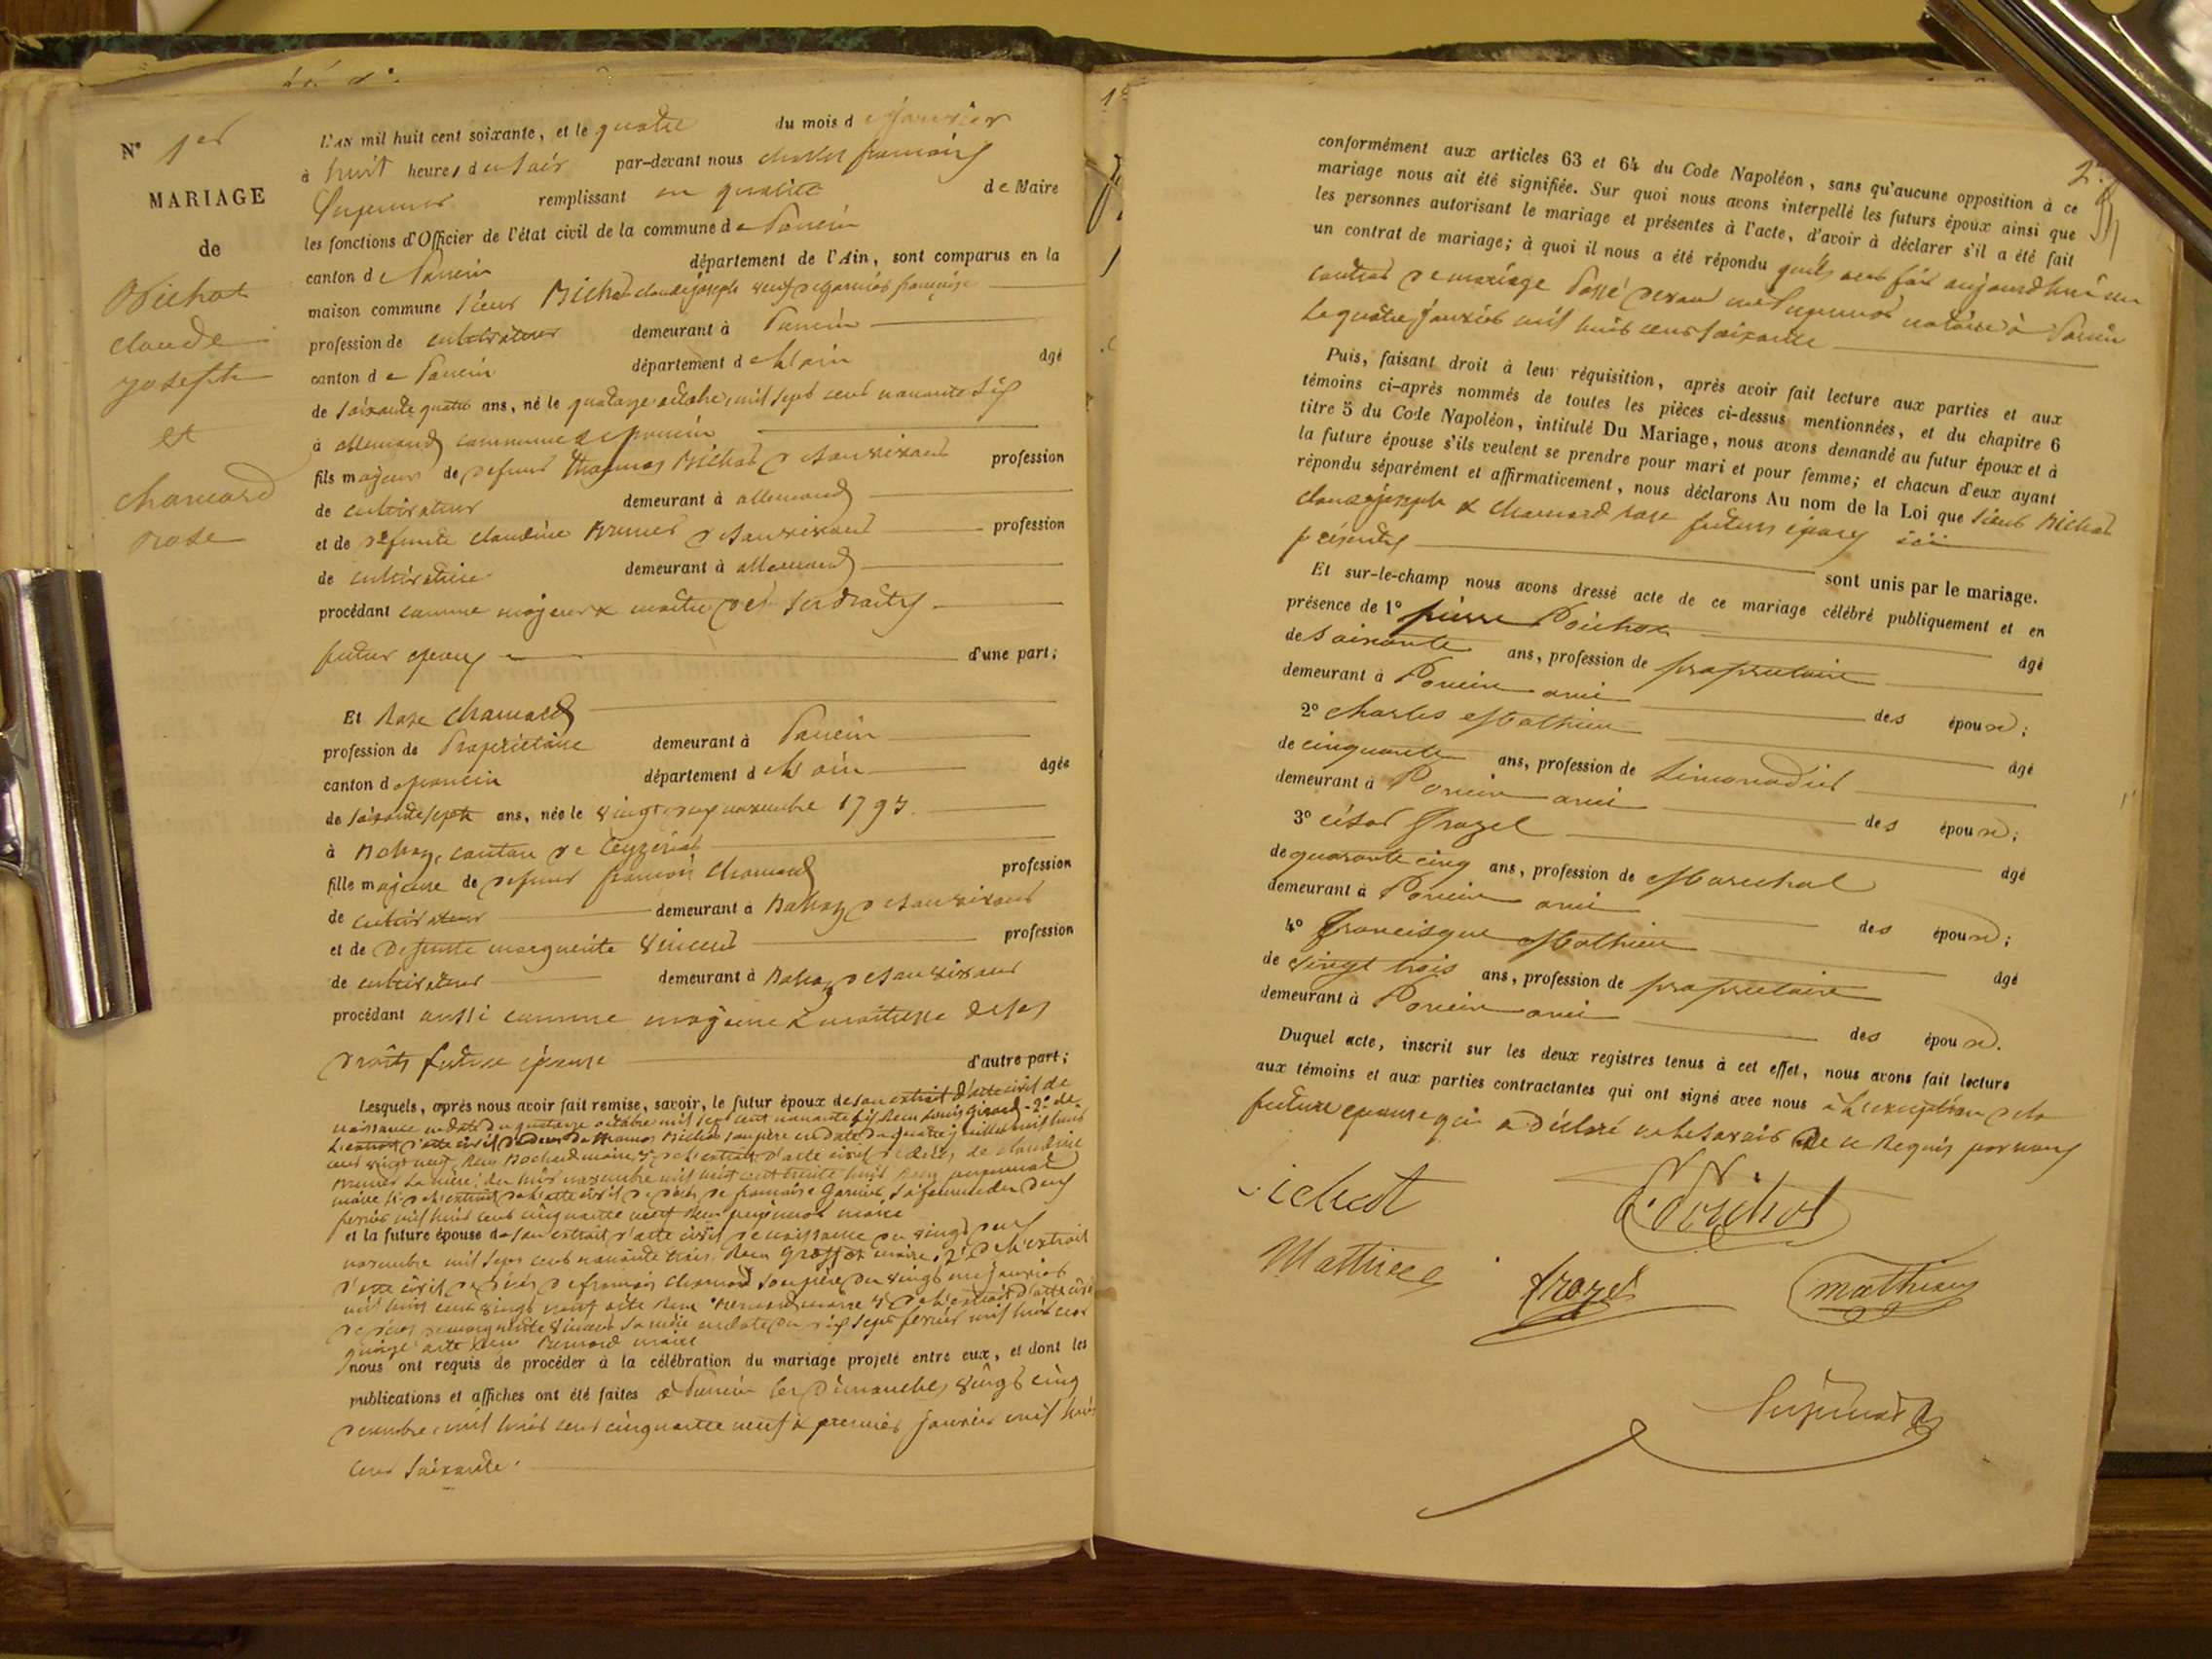 N° 1er
MARIAGE
de
Bichat
claude
joseph
et
chamard
rose
L'AN mil huit cent soixante, et le quatre du mois d janvier
à huit heures du soir par-devant nous charles françois
remplissant en qualité de Maire
les fonctions d'Officier de l'état civil de la commune de Poncin
canton de Poncin département de l'Ain, sont comparus en la
maison commune sieur Bichat claude joseph veuf de garnier françoise
profession de cultivateur demeurant à Poncin
canton de Poncin département de l'ain âgé
de soixante quatre ans, né le quatorze octobre mil sept cent nonante six
à allemand commune de poncin
fils majeur de defunt thomas Bichat de son vivant profession
de cultivateur demeurant à allemand
et de defunte claudine Brunet de son vivant profession
de cultivatrice demeurant à allemand
procédant comme majeur & maître de ses droits
futur epoux d'une part;
Et Rose chamard
profession de Propriétaire demeurant à Poncin
canton de poncin département de l'ain âgée
de soixante sept ans, née le vingt deux novembre 1793
à Bohas, canton de Ceyzériat
fille majeure de defunt françois chamard profession
de cultivateur demeurant à Bohas de son vivant
et de Defunte marguerite Vincent profession
de cultivateur demeurant à Bohas de son vivant
procédant aussi comme majeure & maîtresse de ses
droits future épouse d'autre part;
Lesquels, après nous avoir fait remise, savoir, le futur époux de son extrait d'acte civil de
naissance en date du quatorze octobre mil sept cent nonante six Reçu Louis Girard - 2° de
L'extrait d'acte civil de deces de thomas Bichat son père en date du quatre juillet mil huit
cent vingt neuf, Reçu Bochard maire, 3° de l'extrait d'acte civil de deces de claudine
Brunet sa mère, du huit novembre mil huit cent trente huit Reçu
maire 4° de l'extrait de l'acte civil de décès de françoise Garnier sa femme du deux
fevrier mil huit cent cinquante neuf Reçu maire
et la future épouse de son extrait d'acte civil de naissance du vingt deux
novembre mil sept cent nonante trois Reçu maire, 2° de l'extrait
d'acte civil de décès de françois chamard son père du vingt un janvier
mil huit cent vingt neuf acte Reçu maire 3° de l'extrait d'acte civil
de deces de marguerite Vincent sa mère en date du dix sept fevrier mil huit cent
quinze acte Reçu maire
nous ont requis de procéder à la célébration du mariage projeté entre eux, et dont les
publications et affiches ont été faites à Poncin les Dimanches vingt cinq
decembre mil huit cent cinquante neuf & premier janvier mil huit
cent soixante.
2
conformément aux articles 63 et 64 du Code Napoléon, sans qu'aucune opposition à ce
mariage nous ait été signifiée. Sur quoi nous avons interpellé les futurs époux ainsi que
les personnes autorisant le mariage et présentes à l'acte, d'avoir à déclarer s'il a été fait
un contrat de mariage; à quoi il nous a été répondu qu'ils ont fait aujourd'hui un
contrat de mariage Passé devant notaire à Poncin
le quatre janvier mil huit cent soixante
Puis, faisant droit à leur réquisition, après avoir fait lecture aux parties et aux
témoins ci-après nommés de toutes les pièces ci-dessus mentionnées, et du chapitre 6
titre 5 du Code Napoléon, intitulé Du Mariage, nous avons demandé au futur époux et à
la future épouse s'ils veulent se prendre pour mari et pour femme; et chacun d'eux ayant
répondu séparément et affirmativement, nous déclarons Au nom de la Loi que sieur Bichat
claude joseph & chamard rose futurs époux ici
présents sont unis par le mariage.
Et sur-le-champ nous avons dressé acte de ce mariage célébré publiquement et en
présence de 1° pierre Poichot âgé
de soixante ans, profession de propriétaire
demeurant à Poncin ami des époux;
2° charles Mathieu âgé
de cinquante ans, profession de Limonadier
demeurant à Poncin ami des époux;
3° césar Grozel âgé
de quarante cinq ans, profession de Marechal
demeurant à Poncin ami des époux;
4° francisque Mathieu âgé
de vingt trois ans, profession de propriétaire
demeurant à Poncin ami des époux.
Duquel acte, inscrit sur les deux registres tenus à cet effet, nous avons fait lecture
aux témoins et aux parties contractantes qui ont signé avec nous à L'exception de la
future epouse qui a déclaré ne le savoir de ce Requis par nous
Mathieu
Grozel
mathieu